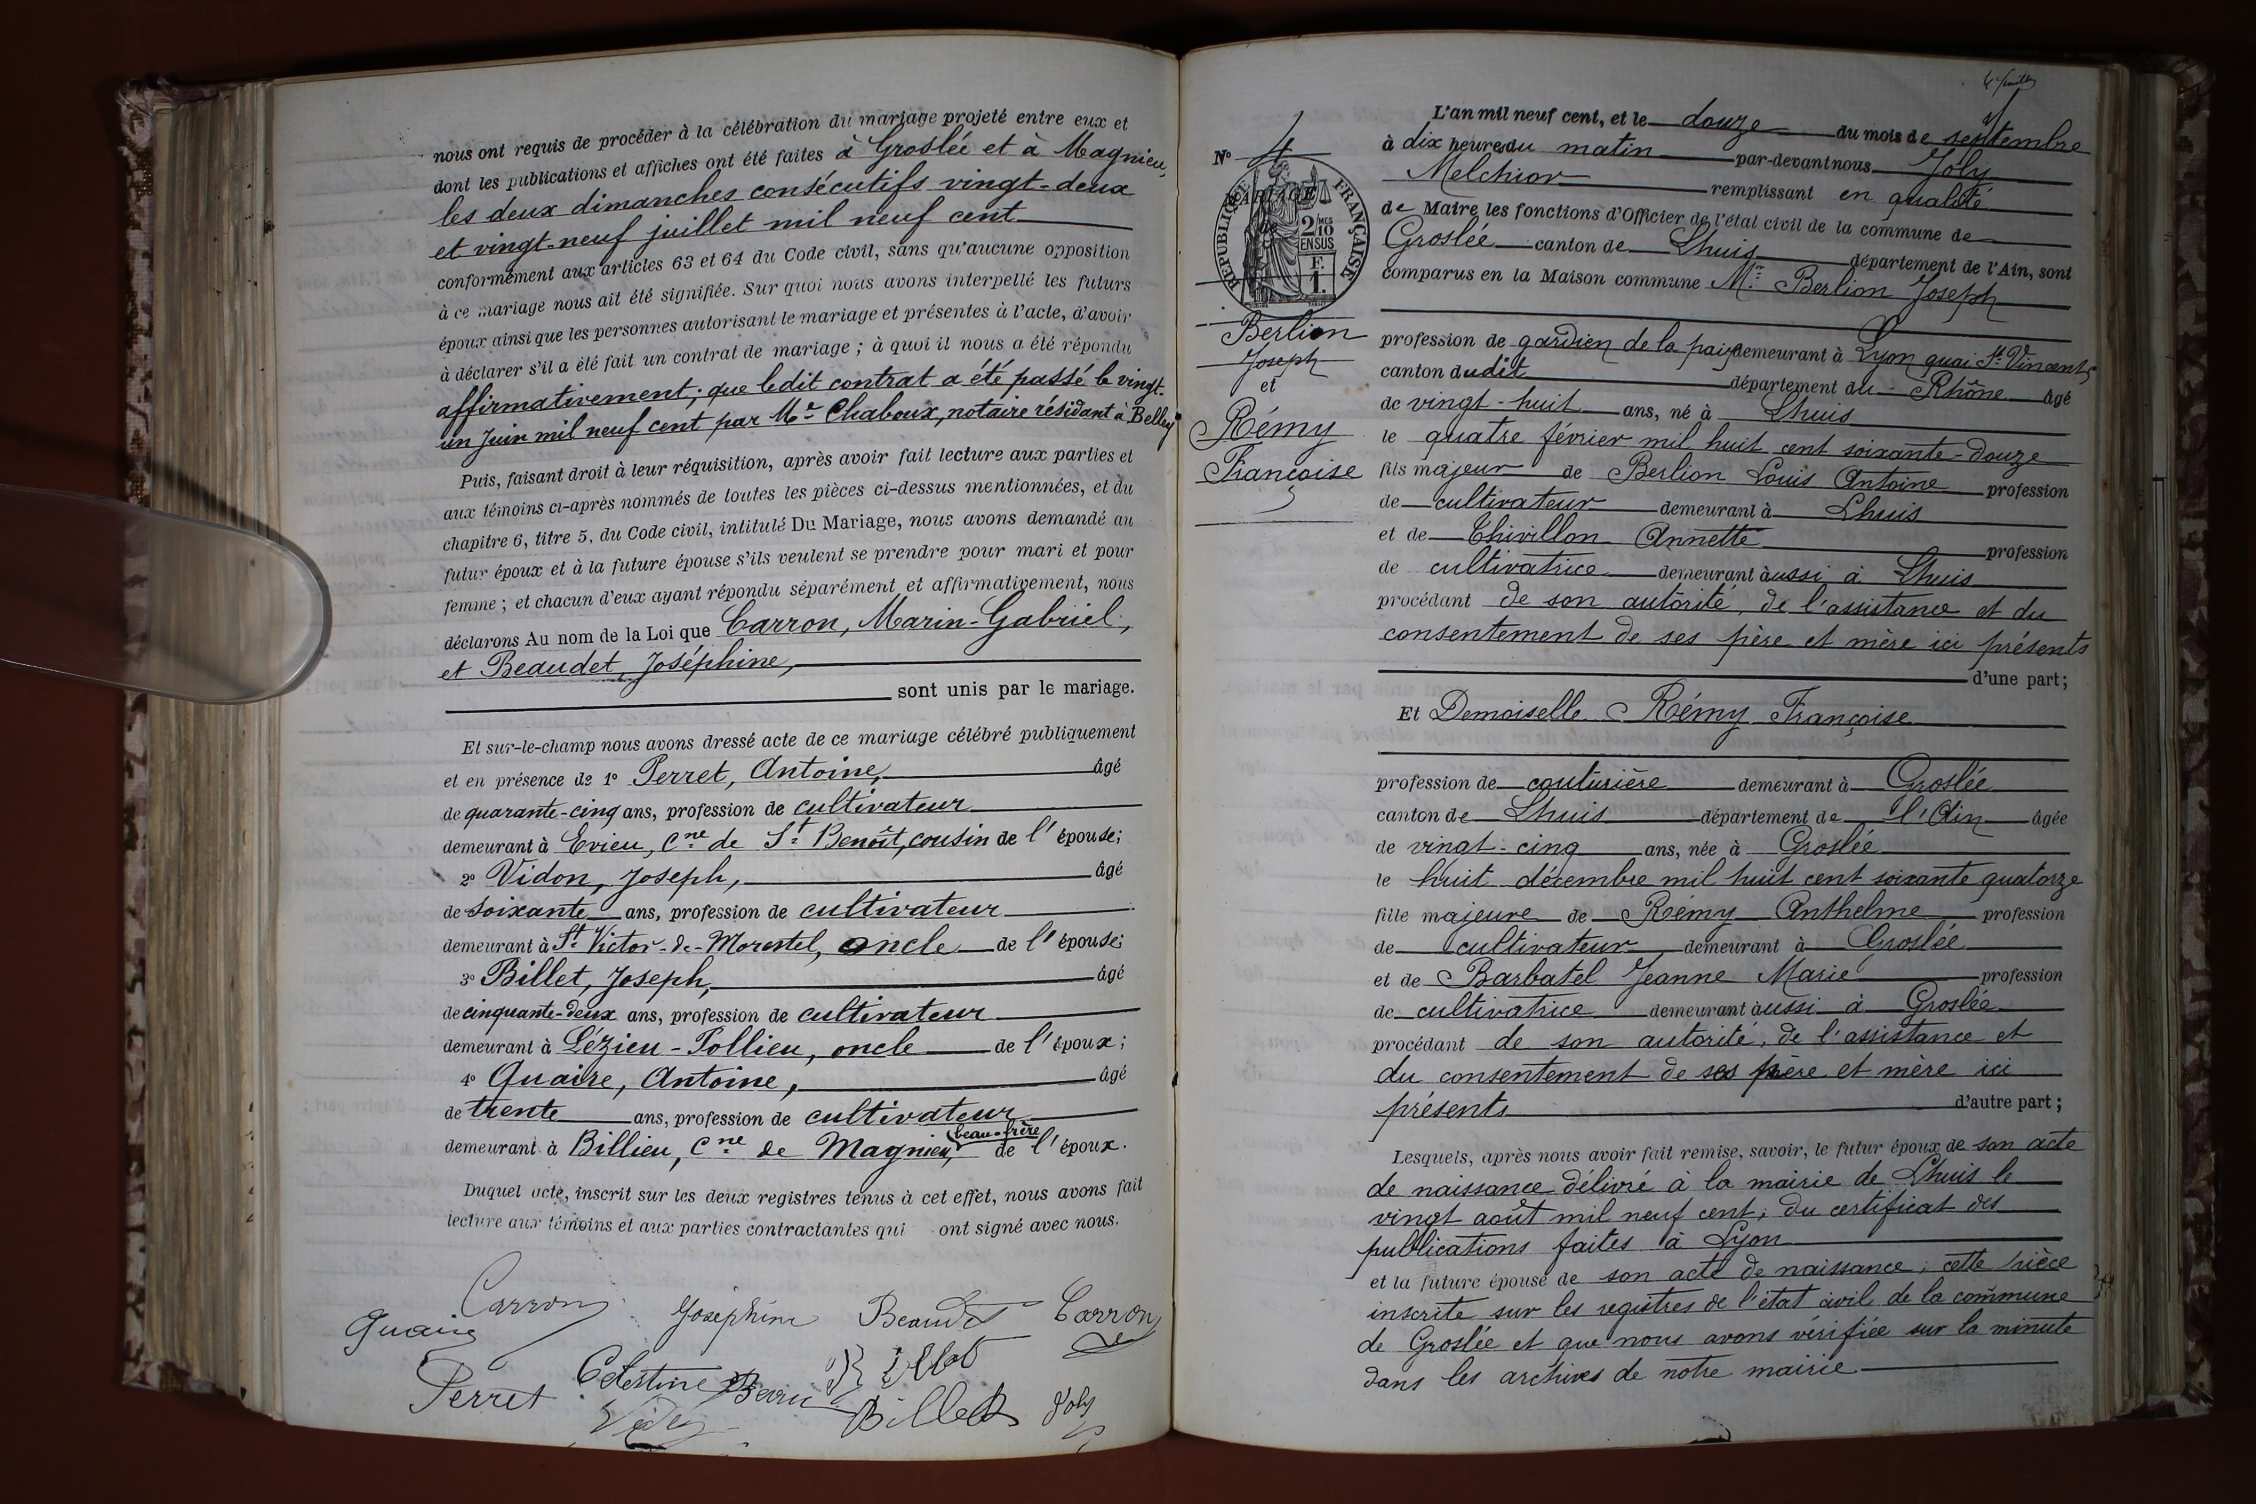 nous ont requis de procéder à la célébration du mariage projeté entre eux et
dont les publications et affiches ont été faites à Groslée et à Magnieu,
les deux dimanches consécutifs vingt-deux
et vingt-neuf juillet mil neuf cent
conformément aux articles 63 et 64 du Code civil, sans qu'aucune opposition
à ce mariage nous ait été signifiée. Sur quoi nous avons interpellé les futurs
époux ainsi que les personnes autorisant le mariage et présentes à l'acte, d'avoir
à déclarer s'il a été fait un contrat de mariage ; à quoi il nous a été répondu
affirmativement ; que ledit contrat a été passé le vingt-
un Juin mil neuf cent par Me Chaboux, notaire résidant à Belley
Puis, faisant droit à leur réquisition, après avoir fait lecture aux parties et
aux témoins ci-après nommés de toutes les pièces ci-dessus mentionnées, et du
chapitre 6, titre 5, du Code civil, intitulé Du Mariage, nous avons demandé au
futur époux et à la future épouse s'ils veulent se prendre pour mari et pour
femme ; et chacun d'eux ayant répondu séparément et affirmativement, nous
déclarons Au nom de la Loi que Carron, Marin-Gabriel,
et Beaudet, Joséphine,
sont unis par le mariage.
Et sur-le-champ nous avons dressé acte de ce mariage célébré publiquement
et en présence de 1° Perret, Antoine, âgé
de quarante-cinq ans, profession de cultivateur
demeurant à Evieu, Cne de St Benoît, cousin de l'épouse ;
2° Vidon, Joseph, âgé
de soixante ans, profession de cultivateur
demeurant à St Victor-de-Morestel, oncle de l'épouse ;
3° Billet, Joseph, âgé
de cinquante-deux ans, profession de cultivateur
demeurant à Lézieu-Pollieu, oncle de l'époux ;
4° Quaire, Antoine, âgé
de trente ans, profession de cultivateur
beau-frère
demeurant à Billieu, Cne de Magnieu, de l'époux.
Duquel acte, inscrit sur les deux registres tenus à cet effet, nous avons fait
lecture aux témoins et aux parties contractantes qui ont signé avec nous.
Carron Joséphine Beaudet Carron
Quaire
Celestine
Perret Billet Joly
4e feuillet
N° 4
MARIAGE
de
RÉPUBLIQUE FRANÇAISE
2/10 MES
EN SUS
F.
1.
Berlion
Joseph
et
Rémy
Françoise
L'an mil neuf cent, et le douze du mois de septembre
à dix heures du matin par-devant nous Joly
Melchior remplissant en qualité
de Maire les fonctions d'Officier de l'état civil de la commune de
Groslée canton de Lhuis département de l'Ain, sont
comparus en la Maison commune Mr Berlion Joseph
profession de gardien de la paix demeurant à Lyon quai St Vincent,
canton dudit département du Rhône âgé
de vingt-huit ans, né à Lhuis
le quatre février mil huit cent soixante-douze
fils majeur de Berlion Louis Antoine profession
de cultivateur demeurant à Lhuis
et de Thivillon Annette profession
de cultivatrice demeurant aussi à Lhuis
procédant de son autorité, de l'assistance et du
consentement de ses père et mère ici présents
d'une part ;
Et Demoiselle Rémy Françoise
profession de couturière demeurant à Groslée
canton de Lhuis département de l'Ain âgée
de vingt-cinq ans, née à Groslée
le huit décembre mil huit cent soixante quatorze
fille majeure de Rémy Anthelme profession
de cultivateur demeurant à Groslée
et de Barbatel Jeanne Marie profession
de cultivatrice demeurant aussi à Groslée
procédant de son autorité, de l'assistance et
du consentement de ses père et mère ici
présents d'autre part ;
Lesquels, après nous avoir fait remise, savoir, le futur époux de son acte
de naissance délivré à la mairie de Lhuis le
vingt août mil neuf cent ; du certificat des
publications faites à Lyon
et la future épouse de son acte de naissance ; cette pièce
inscrite sur les registres de l'état civil de la commune
de Groslée et que nous avons vérifiée sur la minute
dans les archives de notre mairie